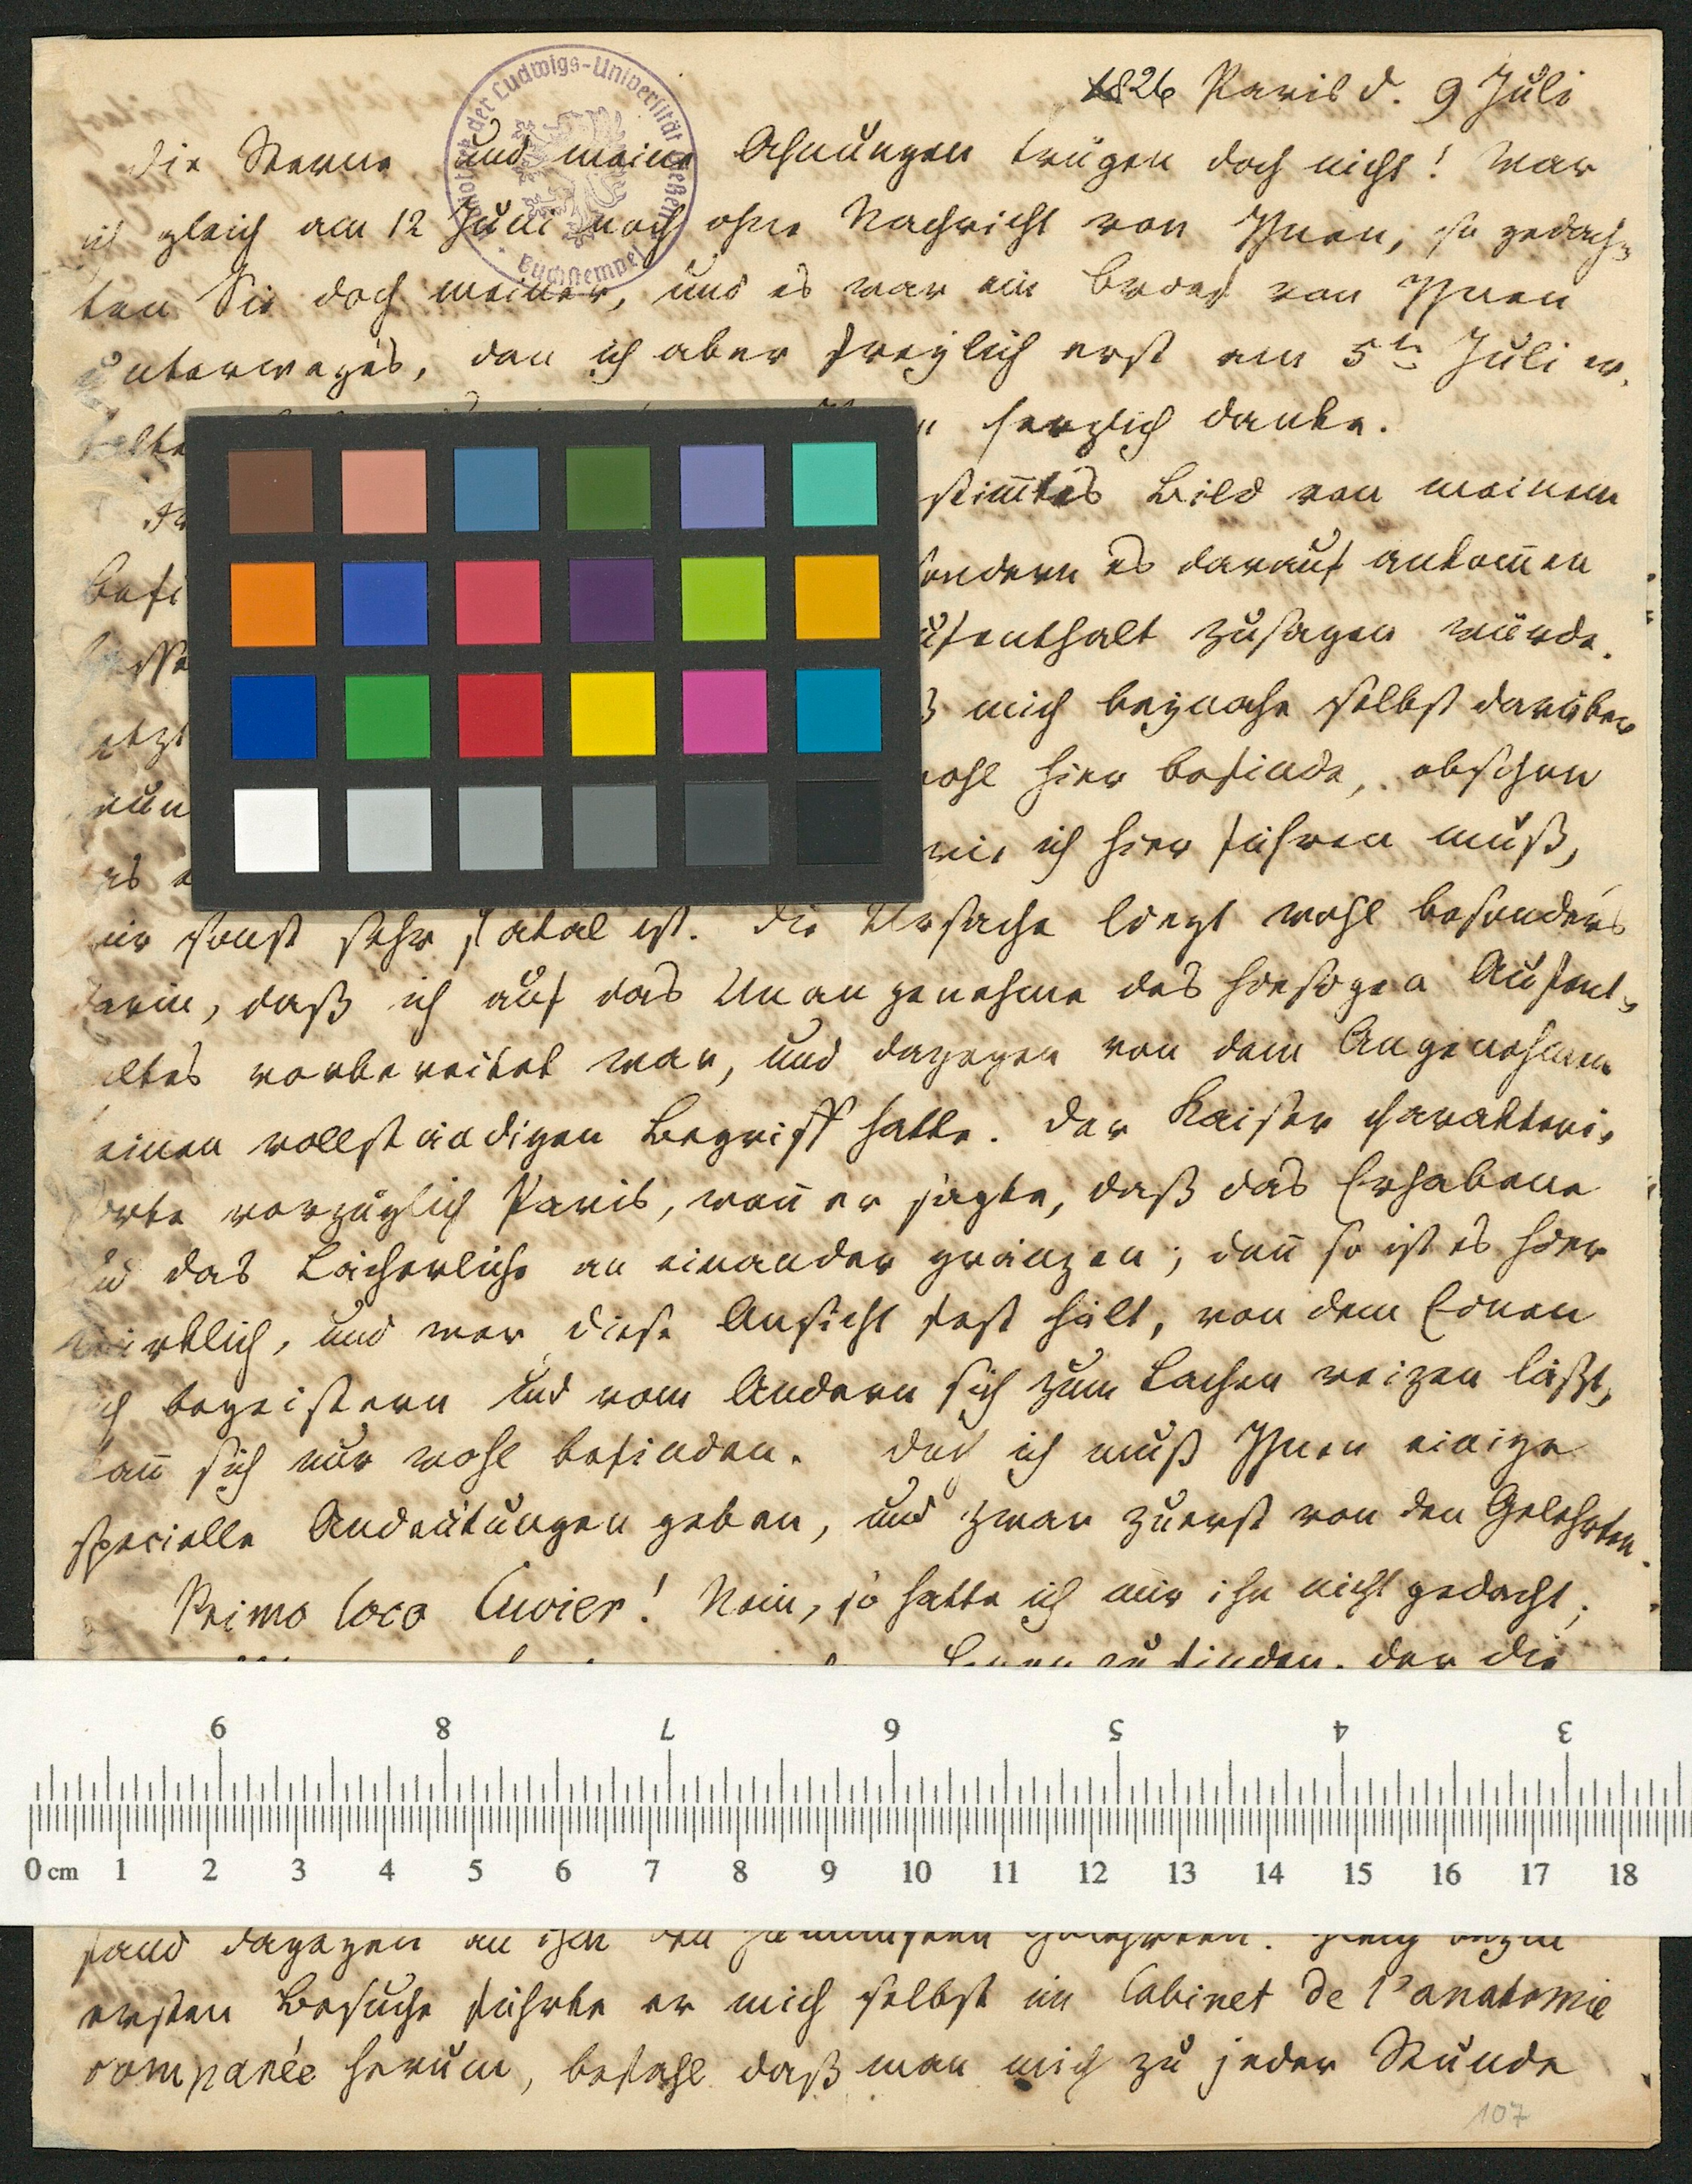 1826 Paris d. 9 Juli
Die Sterne und meine Ahnungen trügen doch nicht! War
ich gleich am 12 Juni noch ohne Nachricht von Ihnen, so gedach=
ten Sie doch meiner, und es war ein Brief von Ihnen
unterweges, den ich aber freylich erst am 5ten Juli er.
hielte
herzlich danke.
stim̅tes Bild von meinem
Befi
sondern es darauf ankom̅en
ufenthalt zusagen würde.
jetzt
mich beynahe selbst darüber
wun
wohl hier befinde, obschon
es
wie ich hier führen muß,
mir sonst sehr fatal ist. Die Ursache liegt wohl besonders
darin, daß ich auf das Unangenehme des hiesigen Aufent=
haltes vorbereitet war, und dagegen von dem Angenehmen
einen vollständigen Begriff hatte. Der Kaiser charakteri=
sirte vorzüglich Paris, wen̅ er sagte, daß das Erhabene
und das Lächerliche an einander gränzen; den̅ so ist es hier
wirklich, und wer diese Ansicht fest hält, von dem Einen
sich begeistern und vom Andern sich zum Lachen reizen läßt,
kan̅ sich nur wohl befinden. Doch ich muß Ihnen einige
specielle Andeutungen geben, und zwar zuerst von den Gelehrten.
Primo loco Cuvier! Nein, so hatte ich mir ihn nicht gedacht;
zu finden, der die
6 8 7 6 5 4 3
0 cm 1 2 3 4 5 6 7 8 9 10 11 12 13 14 15 16 17 18
fand dagegen an ihm den humansten Gelehrten. Gleich beym
ersten Besuche führte er mich selbst im Cabinet de l'anatomie
comparée herum, befahl daß man mich zu jeder Stunde
107